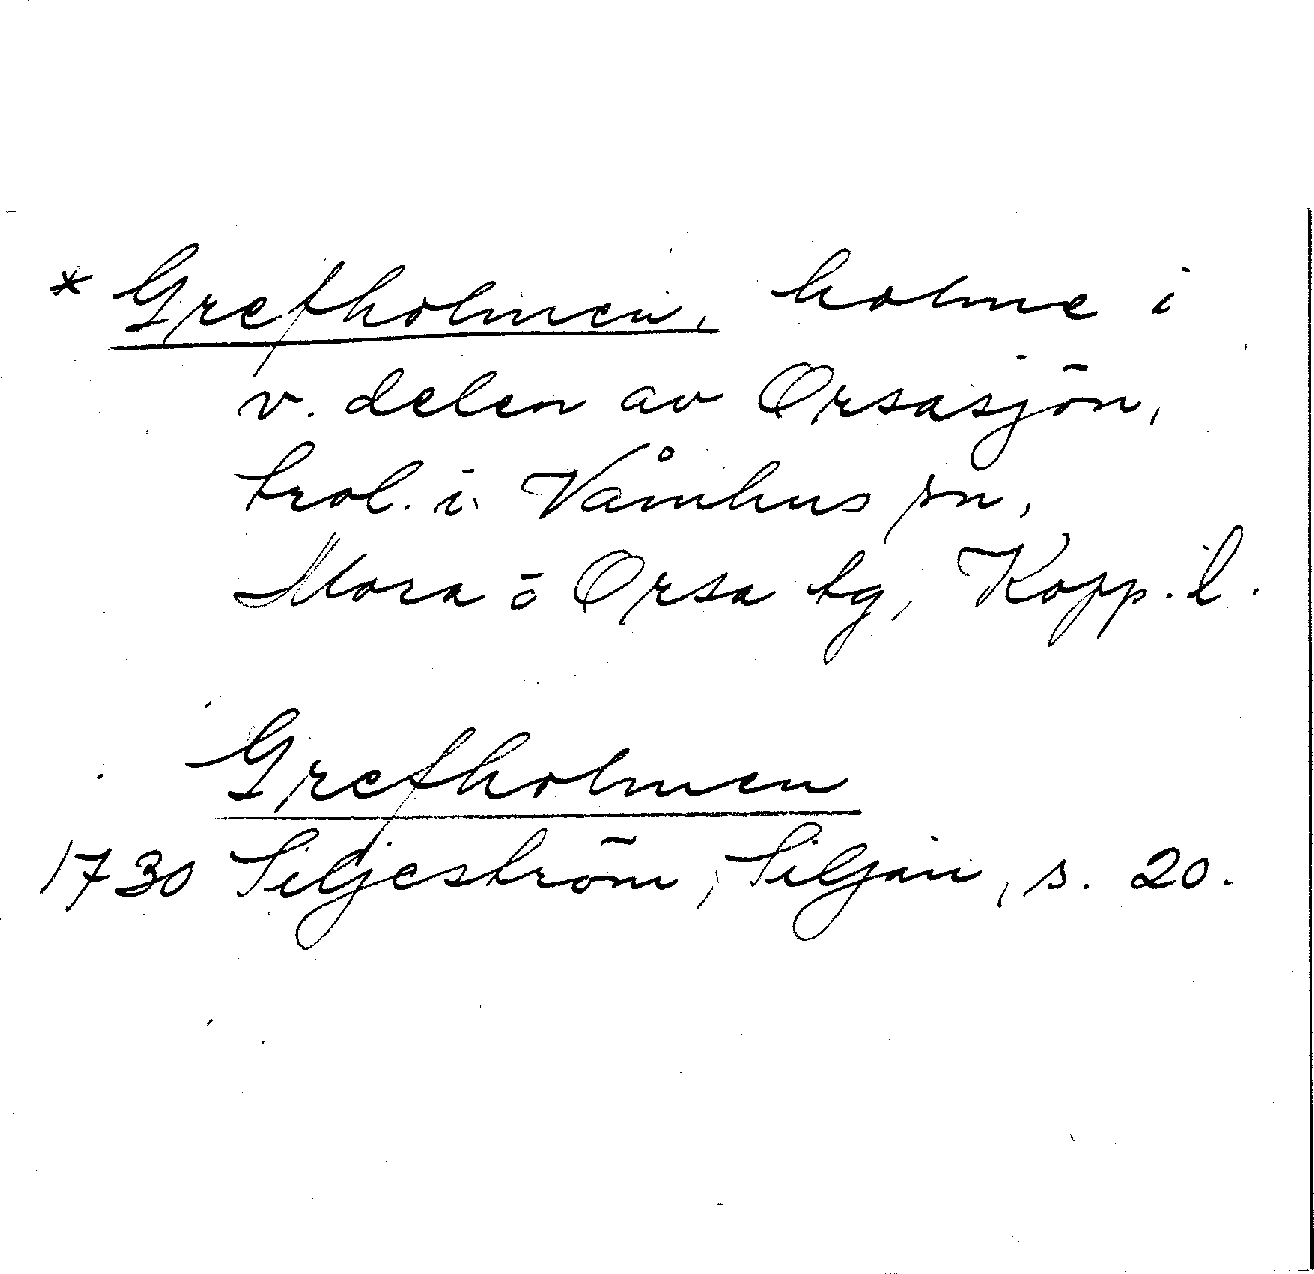 * Grefholmen, holme i
v. delen av Orsasjön,
trol. i Våmhus sn,
Mora o Orsa tg, Kopp. l.
Grefholmen
1730 Siljeström, Siljan, s. 20.